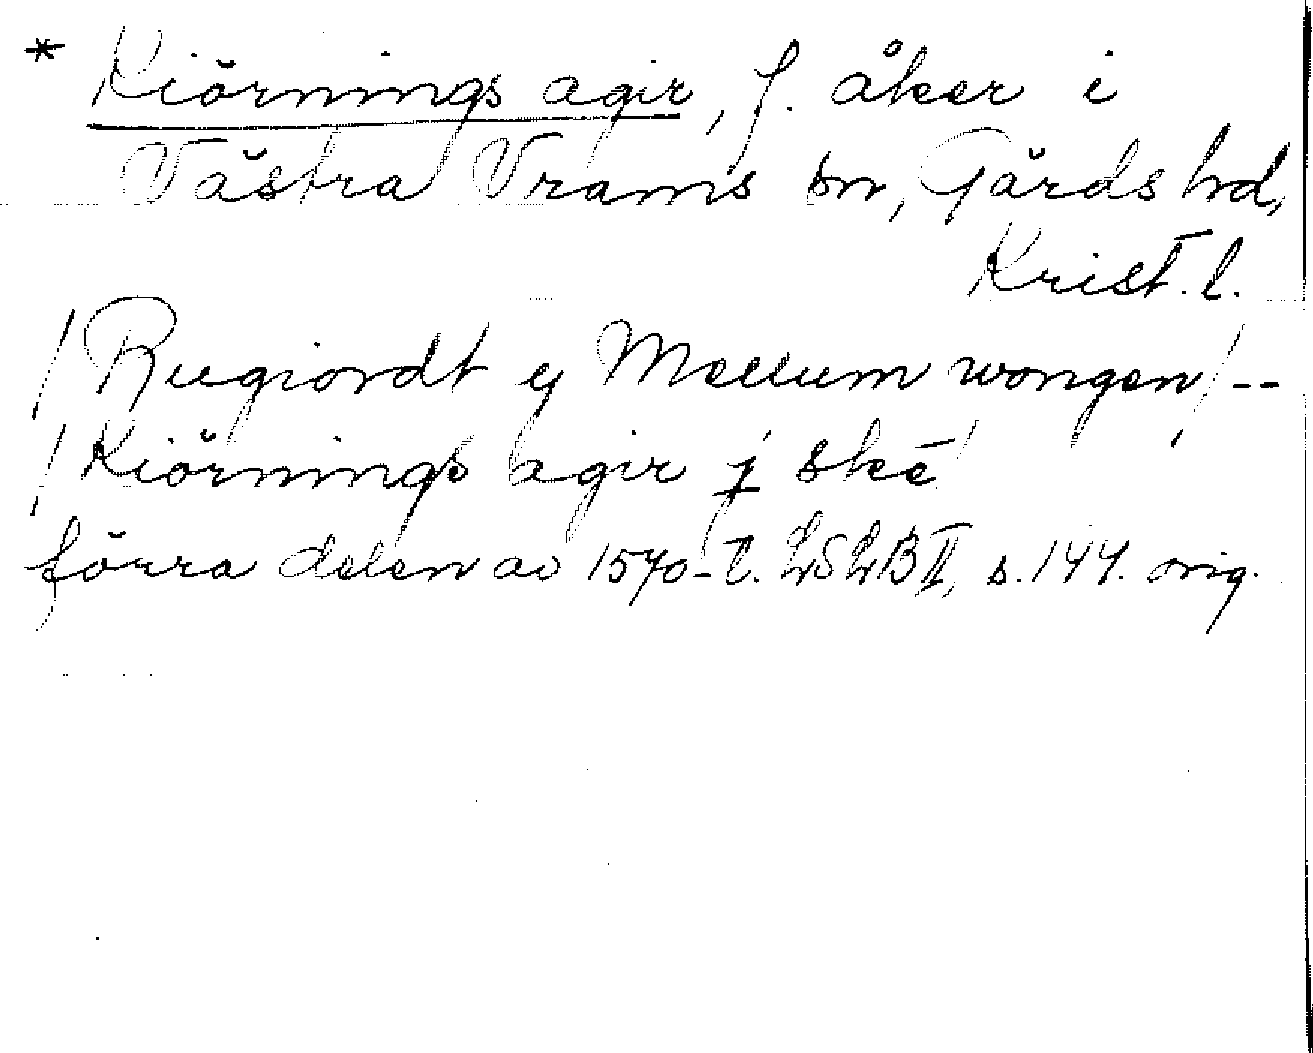 * Kiörnings agir, f. åker i
Västra Vrams sn, Gärds hd,
Krist. l.
/Rugiordt y Mellum wongen/--
/Kiörnings agir j ske/
förra delen av 1570-t. LSLB II, s. 144. orig.